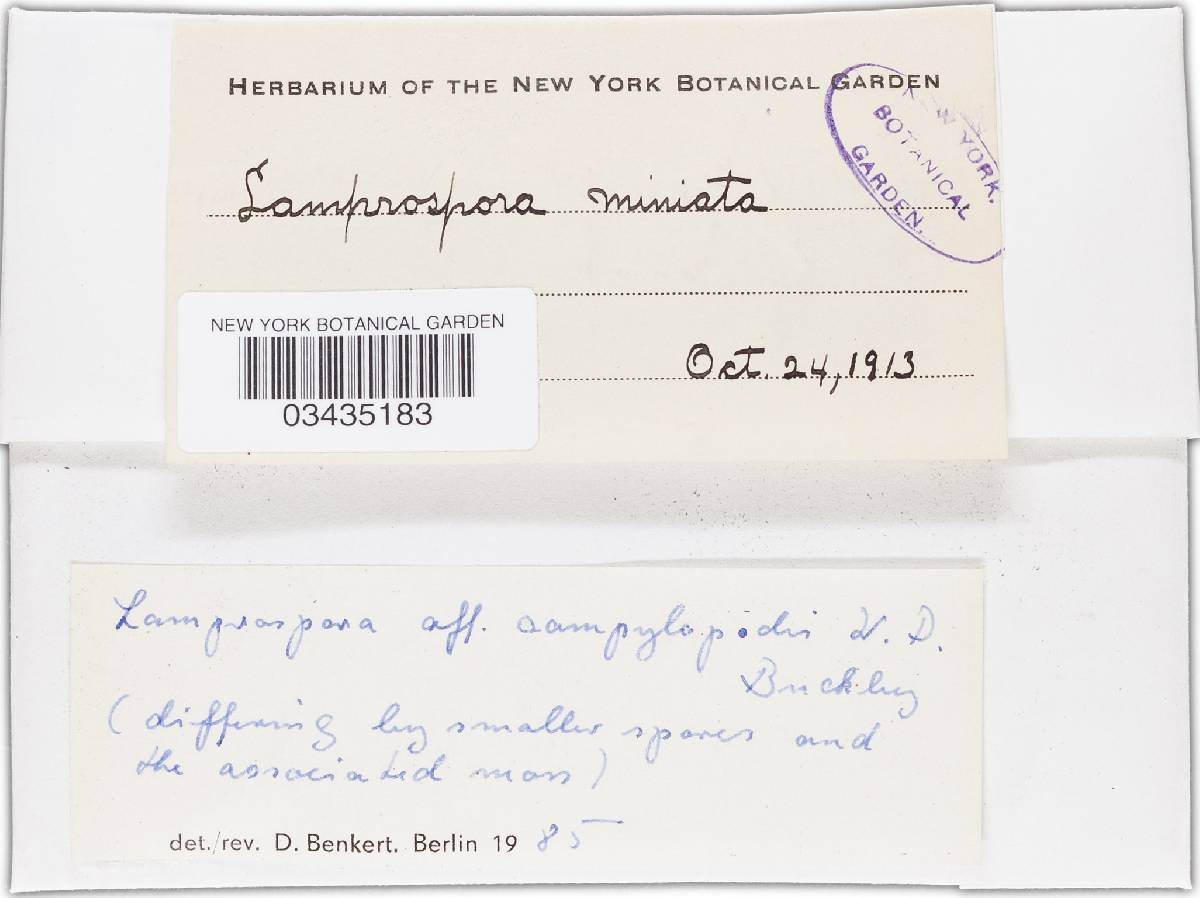 HERBARIUM OF THE NEW YORK BOTANICAL GARDEN
NEW YORK
BOTANICAL
GARDEN.
Lamprospora miniata
NEW YORK BOTANICAL GARDEN
03435183
Oct. 24, 1913
Lamprospora aff. campylopodis W. D.
Buckley
(differing by smaller spores and
the associated moss)
det./rev. D. Benkert. Berlin 19 85